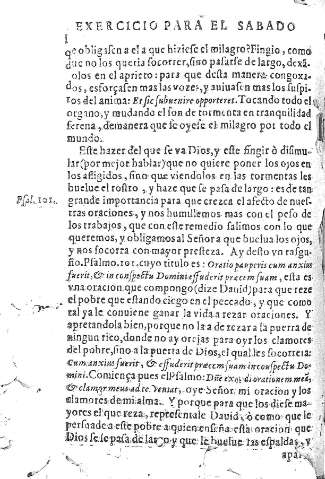 EXERCICIO PARA EL SABADO
q̃ obligasen a el a que hiziese el milagro? Fingio, como
que no los queria socorrer, sino pasarse de largo, dexã
olos en el aprieto: para que desta manera congoxa-
dos, esforçasen mas las vozes, y auiuasen mas los suspi
ros del anima: Et sic subuenire opporteret. Tocando todo el
organo, y mudando el son de tormenta en tranquilidad
serena, demanera que se oyese el milagro por todo el
mundo.
Este hazer del que se va Dios, y este fingir ò dismu-
lar (por mejor hablar) que no quiere poner los ojos en
los afligidos, sino que viendolos en las tormentas les
buelue el rostro, y haze que se pasa de largo: es de tan
grande importancia para que crezca el afecto de nues-
Psal. 101.
tras oraciones, y nos humillemos mas con el peso de
los trabajos, que con este remedio salimos con lo que
queremos, y obligamos al Señor a que buelua los ojos,
y nos socorra con mayor presteza. Ay desto vn rasgu-
ño. Psalmo. 101. cuyo titulo es: Oratio pauperis cum anxius
fuerit, & in conspectu Domini effuderit præcem suam, esta es
vna oracion que compongo (dize Dauid) para que reze
el pobre que estando ciego en el peccado, y que como
tal ya le conuiene ganar la vida a rezar oraciones. Y
apretandola bien, porque no la a de rezar a la puerta de
ningun rico, donde no ay orejas para oyr los clamores
del pobre, sino a la puerta de Dios, el qual les socorrera:
Cum anxius fuerit, & effuderit præcem suam in conspectu Do-
mini. Comiença pues el Psalmo: Dñe exaudi orationem meã,
& clamor meus ad te veniat, oye Señor mi oracion y los
clamores de mi alma. Y porque para que los diese ma-
yores el que reza, representale Dauid, ò como que le
persuade a este pobre a quien enseña esta oracion que
Dios se se pasa de largo y que le buelue las espaldas, y
apar-